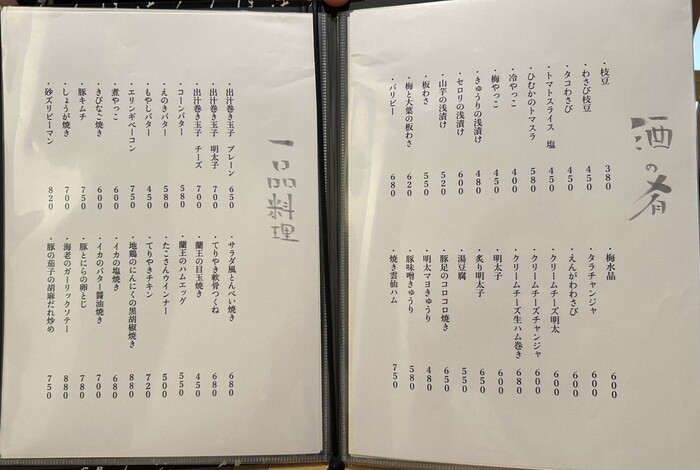 酒の肴
・枝豆 380
・わさび枝豆 450
・タコわさび 450
・トマトスライス 塩 450
・ひむかのトマスラ 580
・冷やっこ 400
・梅やっこ 450
・きゅうりの浅漬け 480
・セロリの浅漬け 600
・山芋の浅漬け 520
・板わさ 550
・梅と大葉の板わさ 620
・バリピー 680
・梅水晶 600
・タラチャンジャ 600
・えんがわわさび 600
・クリームチーズ明太 600
・クリームチーズチャンジャ 600
・クリームチーズ生ハム巻き 680
・明太子 600
・炙り明太子 650
・湯豆腐 550
・豚足のコロコロ焼き 650
・明太マヨきゅうり 480
・豚味噌きゅうり 580
・焼き雲仙ハム 750
一品料理
・出汁巻き玉子 プレーン 650
・出汁巻き玉子 明太子 700
・出汁巻き玉子 チーズ 700
・コーンバター 580
・えのきバター 580
・もやしバター 450
・エリンギベーコン 750
・煮やっこ 600
・きびなご焼き 600
・豚キムチ 750
・しょうが焼き 700
・砂ズリピーマン 820
・サラダ風とんぺい焼き 680
・てりやき軟骨つくね 680
・蘭王の目玉焼き 450
・蘭王のハムエッグ 550
・たこさんウインナー 500
・てりやきチキン 720
・地鶏のにんにくの黒胡椒焼き 880
・イカの塩焼き 680
・イカのバター醤油焼き 700
・豚とにらの卵とじ 780
・海老のガーリックソテー 880
・豚の茄子の胡麻だれ炒め 750